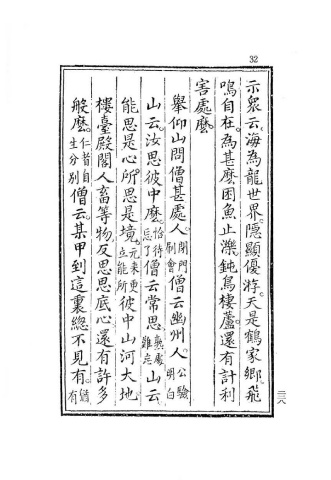 32
示眾云。海為龍世界。隱顯優游。天是鶴家鄉。飛
鳴自在。為甚麼困魚止濼。鈍鳥棲蘆。還有計利
害處麼。
舉仰山問僧甚處人。閉門刷會僧云幽州人。公驗明白
山云。汝思彼中麼。恰待忘了僧云常思。熟處難忘山云
能思是心。所思是境。元來更立能所彼中山河大地。
樓臺殿閣人畜等物。反思思底心還有許多
般麼。仁者自生分別僧云。某甲到這裏總不見有。猶有